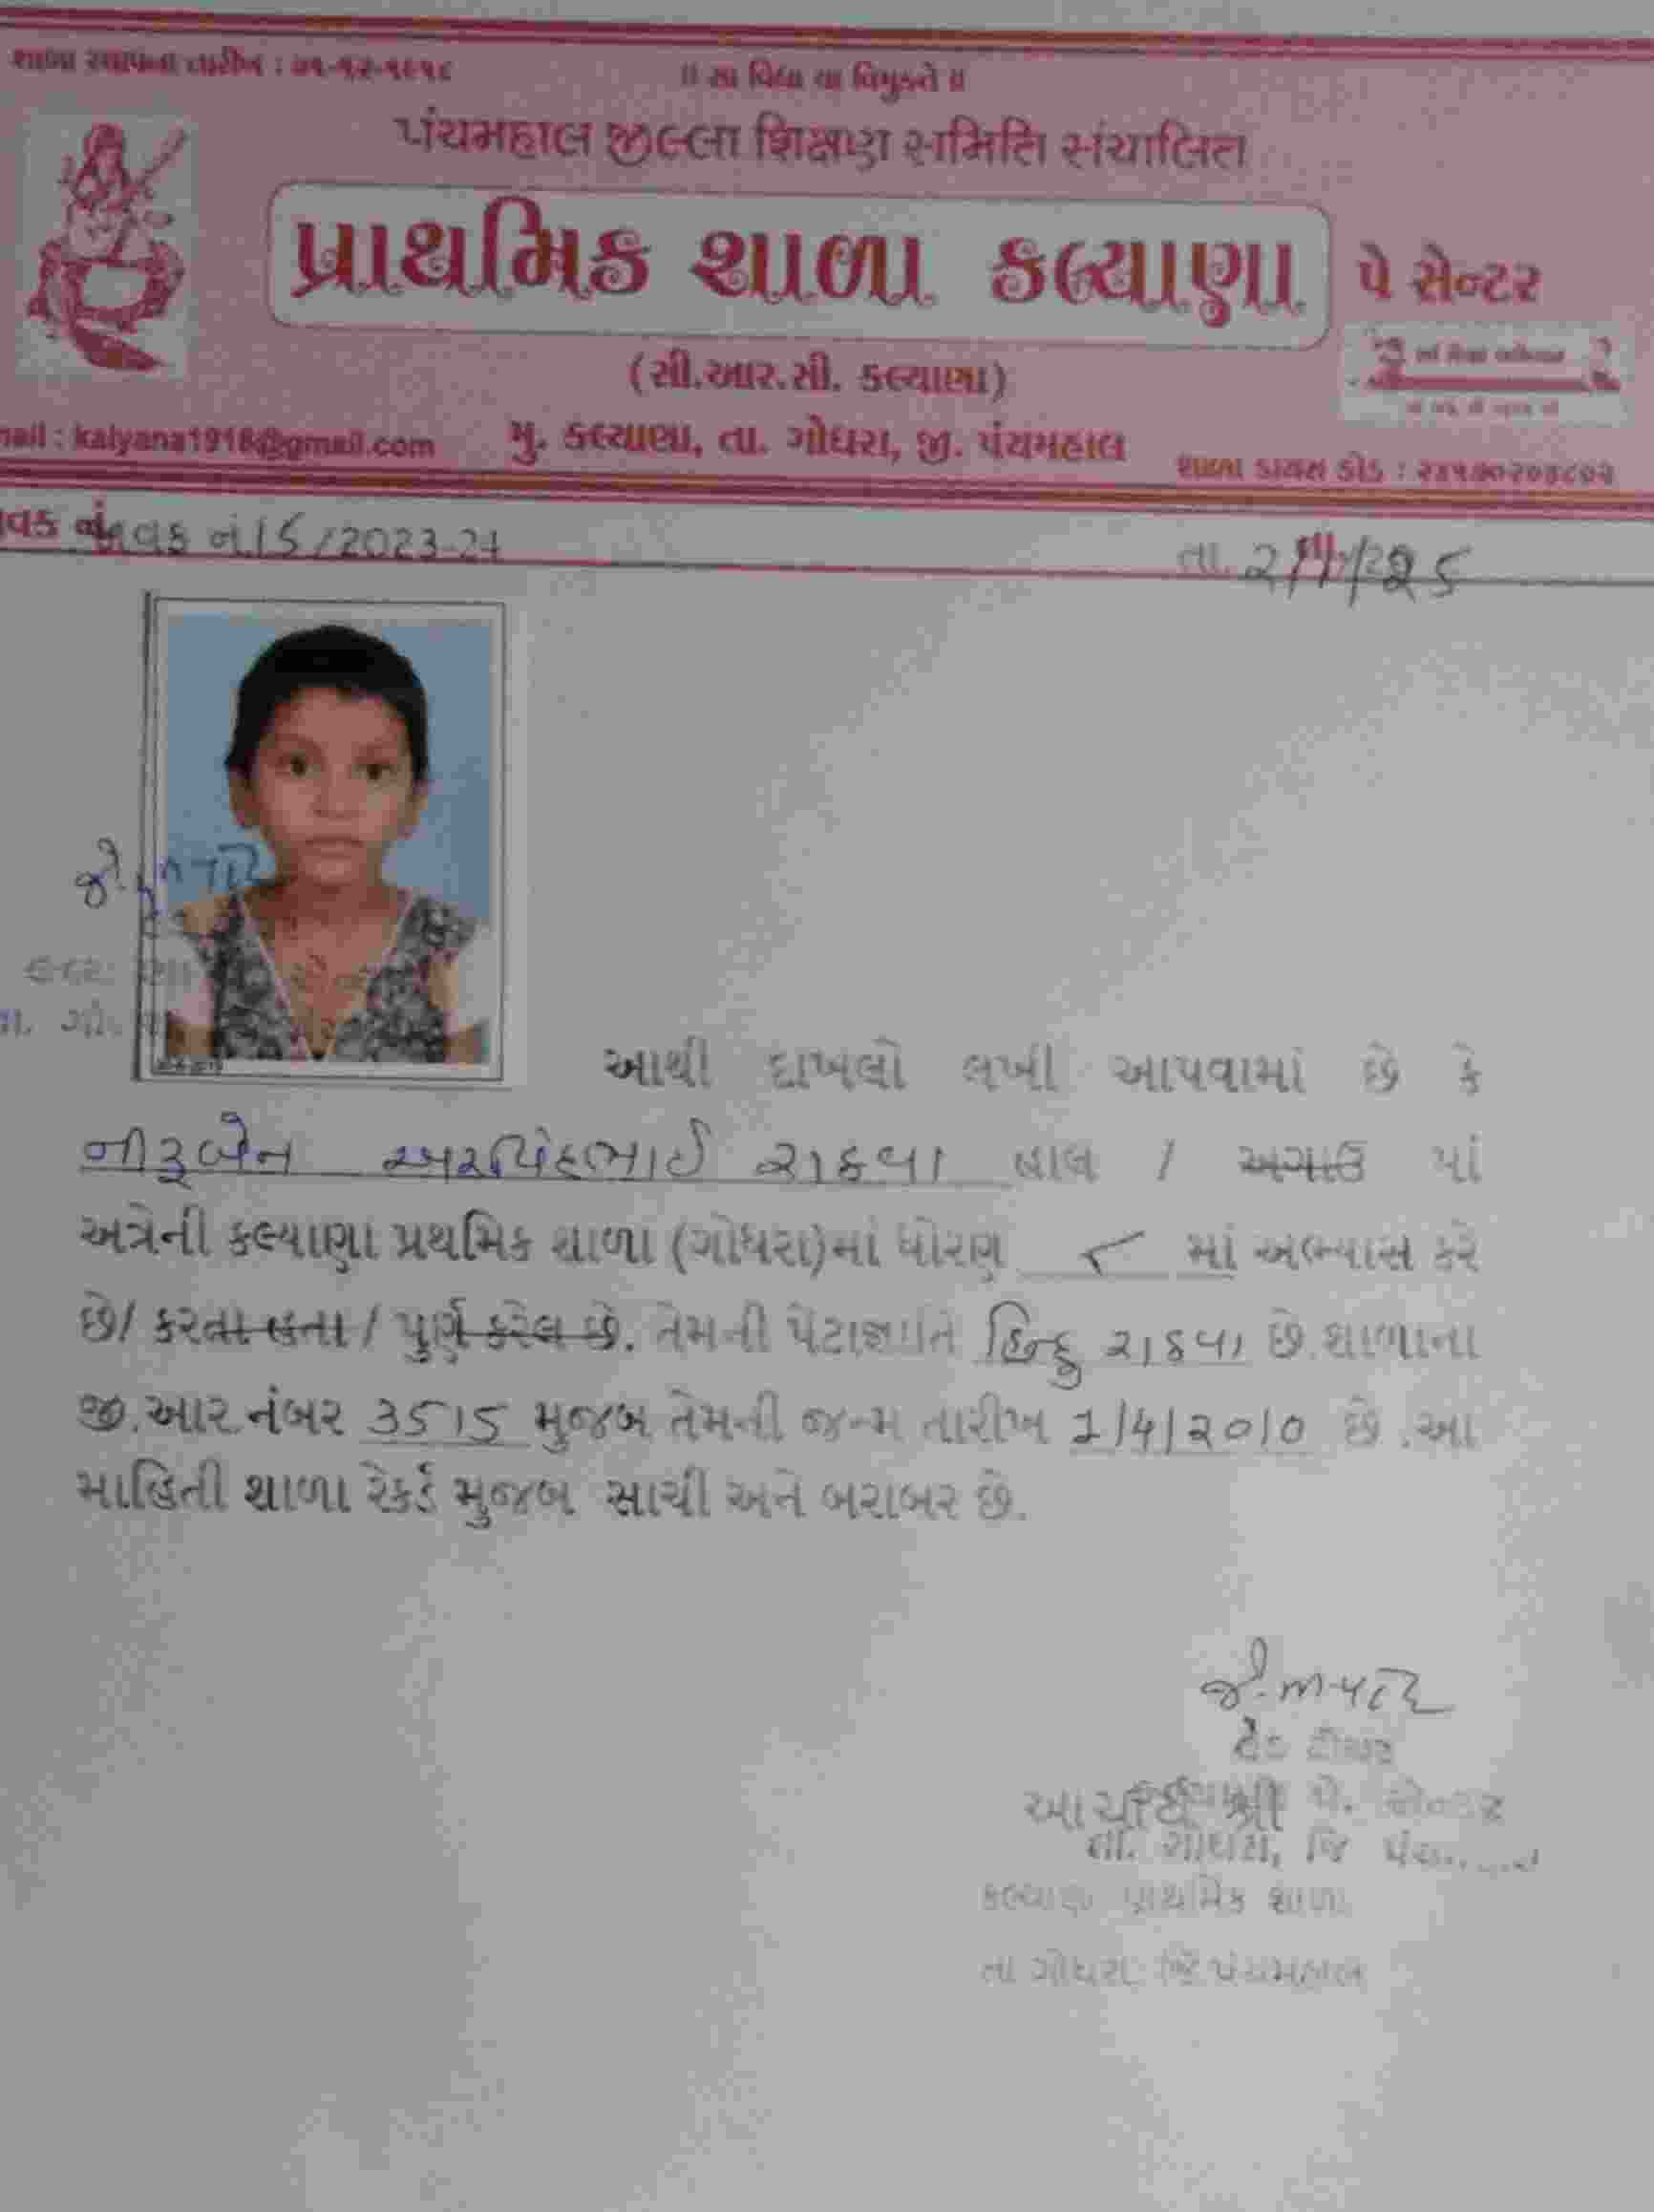 શાળા સ્થાપના તારીખ : ૦૧-૧૨-૧૯૧૮
॥ સા વિદ્યા યા વિમુક્તે ॥
પંચમહાલ જીલ્લા શિક્ષણ સમિતિ સંચાલિત
પ્રાથમિક શાળા કલ્યાણા પે સેન્ટર
(સી.આર.સી. કલ્યાણા)
mail : kalyana1918@gmail.com મુ. કલ્યાણા, તા. ગોધરા, જી. પંચમહાલ
શાળા ડાયસ કોડ :
વક નં. /2023-24 તા.
આથી દાખલો લખી આપવામાં છે કે
નીરૂબેન અરવિંદભાઈ રાઠવા હાલ / અગાઉ માં
અત્રેની કલ્યાણા પ્રથમિક શાળા (ગોધરા)માં ધોરણ ૮ માં અભ્યાસ કરે
છે/ કરતા હતા / પુર્ણ કરેલ છે. તેમની પેટાજ્ઞાતિ હિન્દુ રાઠવા છે.શાળાના
જી.આર.નંબર 3515 મુજબ તેમની જન્મ તારીખ 1/4/2010 છે .આ
માહિતી શાળા રેકર્ડ મુજબ સાચી અને બરાબર છે.
હેડ ટીચર
આચાર્ય શ્રી પે. સેન્ટર
તા. ગોધરા, જિ
કલ્યાણા પ્રાથમિક શાળા
તા ગોધરા જિ પંચમહાલ